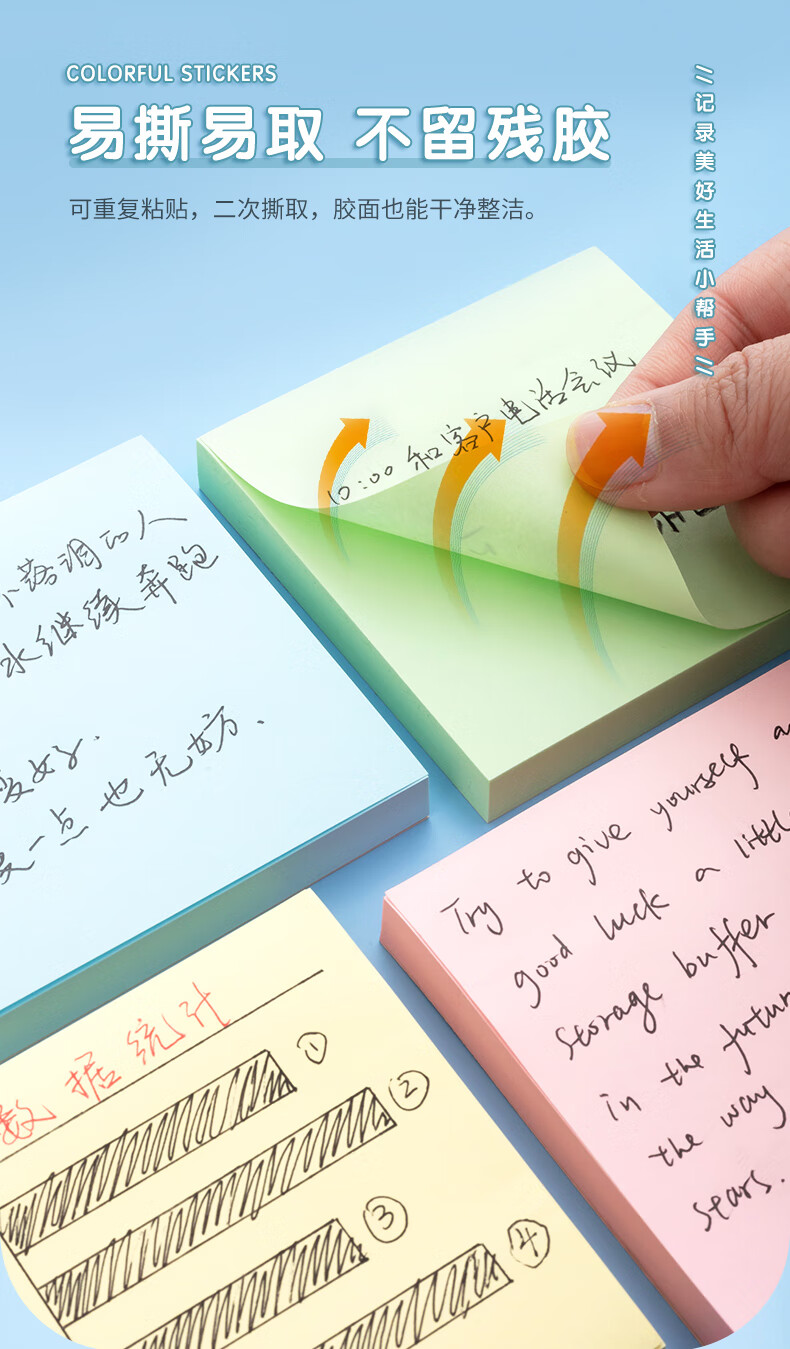 COLORFUL STICKERS
易撕易取 不留残胶
可重复粘贴，二次撕取，胶面也能干净整洁。
//记录美好生活小帮手//
10:00 和客户电话会议
小落调的人
水继续奔跑
变好.
一点也无妨、
Try to give yourself a
good luck a little
storage buffer
in the futur
the way
stars.
数据统计
①
②
③
④